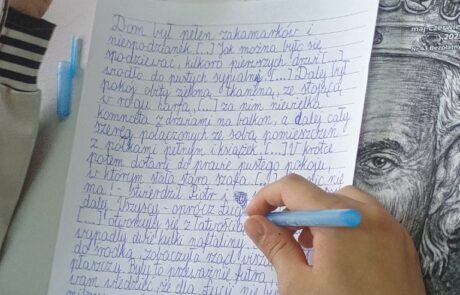 Dom był pełen zakamarków i
niespodzianek [...] Jak można było się
spodziewać, kilkoro pierwszych drzwi [...]
wiodło do pustych sypialni. [...] Dalej był
pokój obity zieloną tkaniną, ze stojącą
w rogu harfą, [...] za nim niewielka
komnata z drzwiami na balkon, a dalej cały
szereg połączonych ze sobą pomieszczeń
z półkami pełnymi książek. [...] W krótce
potem dotarli do prawie pustego pokoju,
w którym stała stara szafa. [...] nie
ma! - stwierdził Piotr i
dalej. Wszyscy - oprócz Łucji
[...] otworzyły się z łatwością
wypadły dwie kulki naftaliny
do środka, zobaczyła rząd wisz
płaszczy. były to przeważnie futra
wam wiedzieć, że dla Łucji nie by
maj-czerwiec